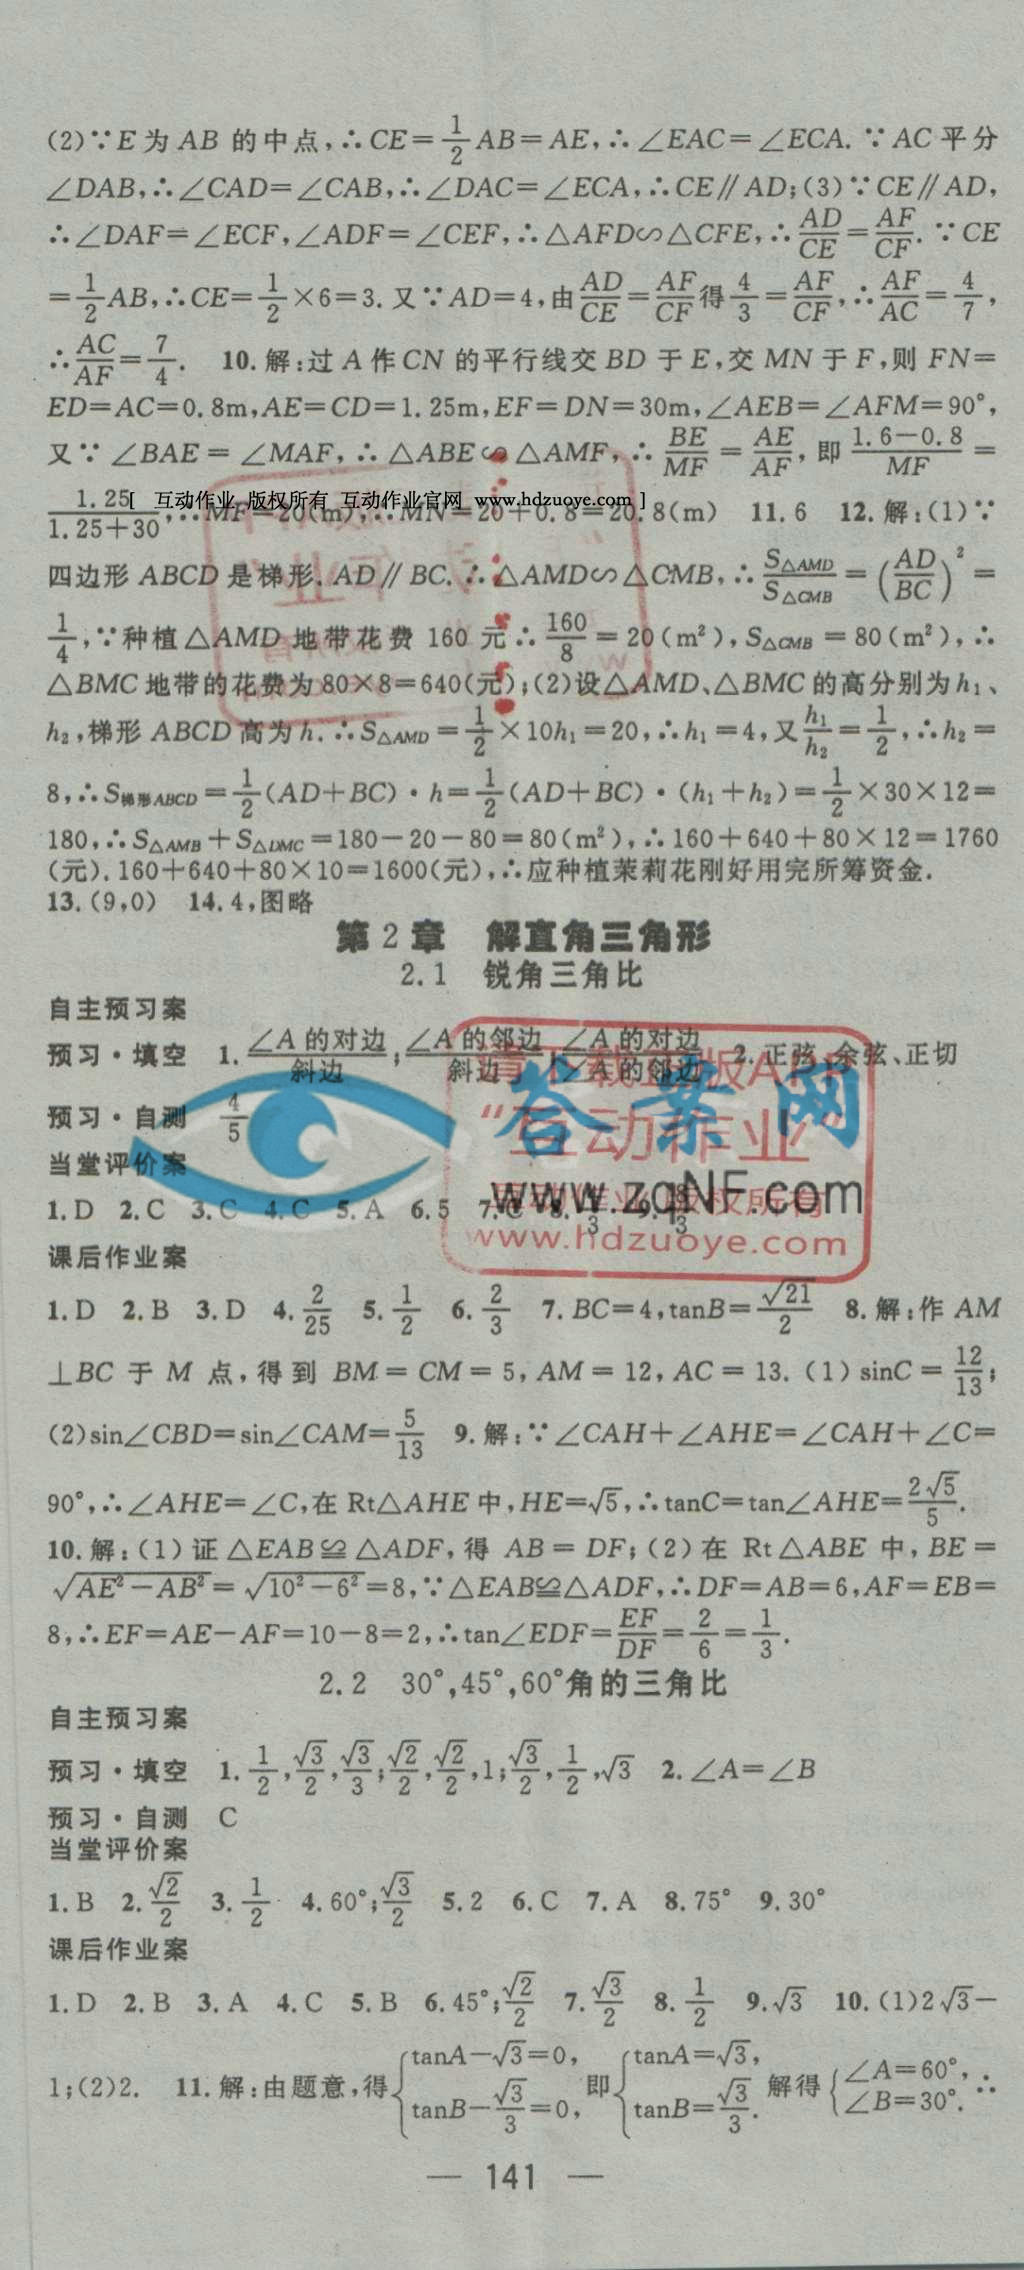 (2)∵E为AB的中点,∴CE=1/2AB=AE,∴∠EAC=∠ECA.∵AC平分
∠DAB,∴∠CAD=∠CAB,∴∠DAC=∠ECA,∴CE∥AD;(3)∵CE∥AD,
∴∠DAF=∠ECF,∠ADF=∠CEF,∴△AFD∽△CFE,∴AD/CE=AF/CF.∵CE
=1/2AB,∴CE=1/2×6=3.又∵AD=4,由AD/CE=AF/CF得4/3=AF/CF,∴AF/AC=4/7,
∴AC/AF=7/4. 10.解:过A作CN的平行线交BD于E,交MN于F,则FN=
ED=AC=0.8m,AE=CD=1.25m,EF=DN=30m,∠AEB=∠AFM=90°,
又∵∠BAE=∠MAF,∴△ABE∽△AMF,∴BE/MF=AE/AF,即(1.6-0.8)/MF=
1.25/(1.25+30),∴MF=20(m),∴MN=20+0.8=20.8(m) 11.6 12.解:(1)∵
[ 互动作业 版权所有 互动作业官网 www.hdzuoye.com ]
四边形ABCD是梯形.AD∥BC.∴△AMD∽△CMB,∴S△AMD/S△CMB=(AD/BC)²=
1/4,∵种植△AMD地带花费160元∴160/8=20(m²),S△CMB=80(m²),∴
△BMC地带的花费为80×8=640(元);(2)设△AMD、△BMC的高分别为h₁、
h₂,梯形ABCD高为h.∴S△AMD=1/2×10h₁=20,∴h₁=4,又h₁/h₂=1/2,∴h₂=
8,∴S梯形ABCD=1/2(AD+BC)·h=1/2(AD+BC)·(h₁+h₂)=1/2×30×12=
180,∴S△AMB+S△DMC=180-20-80=80(m²),∴160+640+80×12=1760
(元).160+640+80×10=1600(元),∴应种植茉莉花刚好用完所筹资金.
13.(9,0) 14.4,图略
第2章 解直角三角形
2.1 锐角三角比
自主预习案
预习·填空 1.∠A的对边/斜边;∠A的邻边/斜边;∠A的对边/∠A的邻边 2.正弦、余弦、正切
预习·自测 4/5
答案网
www.zqNF.com
"互动作业"
www.hdzuoye.com
当堂评价案
1.D 2.C 3.C 4.C 5.A 6.5 7.C 8. 9.
课后作业案
1.D 2.B 3.D 4.2/25 5.1/2 6.2/3 7.BC=4,tanB=√21/2 8.解:作AM
⊥BC于M点,得到BM=CM=5,AM=12,AC=13.(1)sinC=12/13;
(2)sin∠CBD=sin∠CAM=5/13 9.解:∵∠CAH+∠AHE=∠CAH+∠C=
90°,∴∠AHE=∠C,在Rt△AHE中,HE=√5,∴tanC=tan∠AHE=2√5/5.
10.解:(1)证△EAB≌△ADF,得AB=DF;(2)在Rt△ABE中,BE=
√(AE²-AB²)=√(10²-6²)=8,∵△EAB≌△ADF,∴DF=AB=6,AF=EB=
8,∴EF=AE-AF=10-8=2,∴tan∠EDF=EF/DF=2/6=1/3.
2.2 30°,45°,60°角的三角比
自主预习案
预习·填空 1.1/2,√3/2,√3/3;√2/2,√2/2,1;√3/2,1/2,√3 2.∠A=∠B
预习·自测 C
当堂评价案
1.B 2.√2/2 3.1/2 4.60°;√3/2 5.2 6.C 7.A 8.75° 9.30°
课后作业案
1.D 2.B 3.A 4.C 5.B 6.45°;√2/2 7.√3/2 8.1/2 9.√3 10.(1)2√3-
1;(2)2. 11.解:由题意,得{tanA-√3=0, tanB-√3/3=0,即{tanA=√3, tanB=√3/3.解得{∠A=60°, ∠B=30°.∴
— 141 —